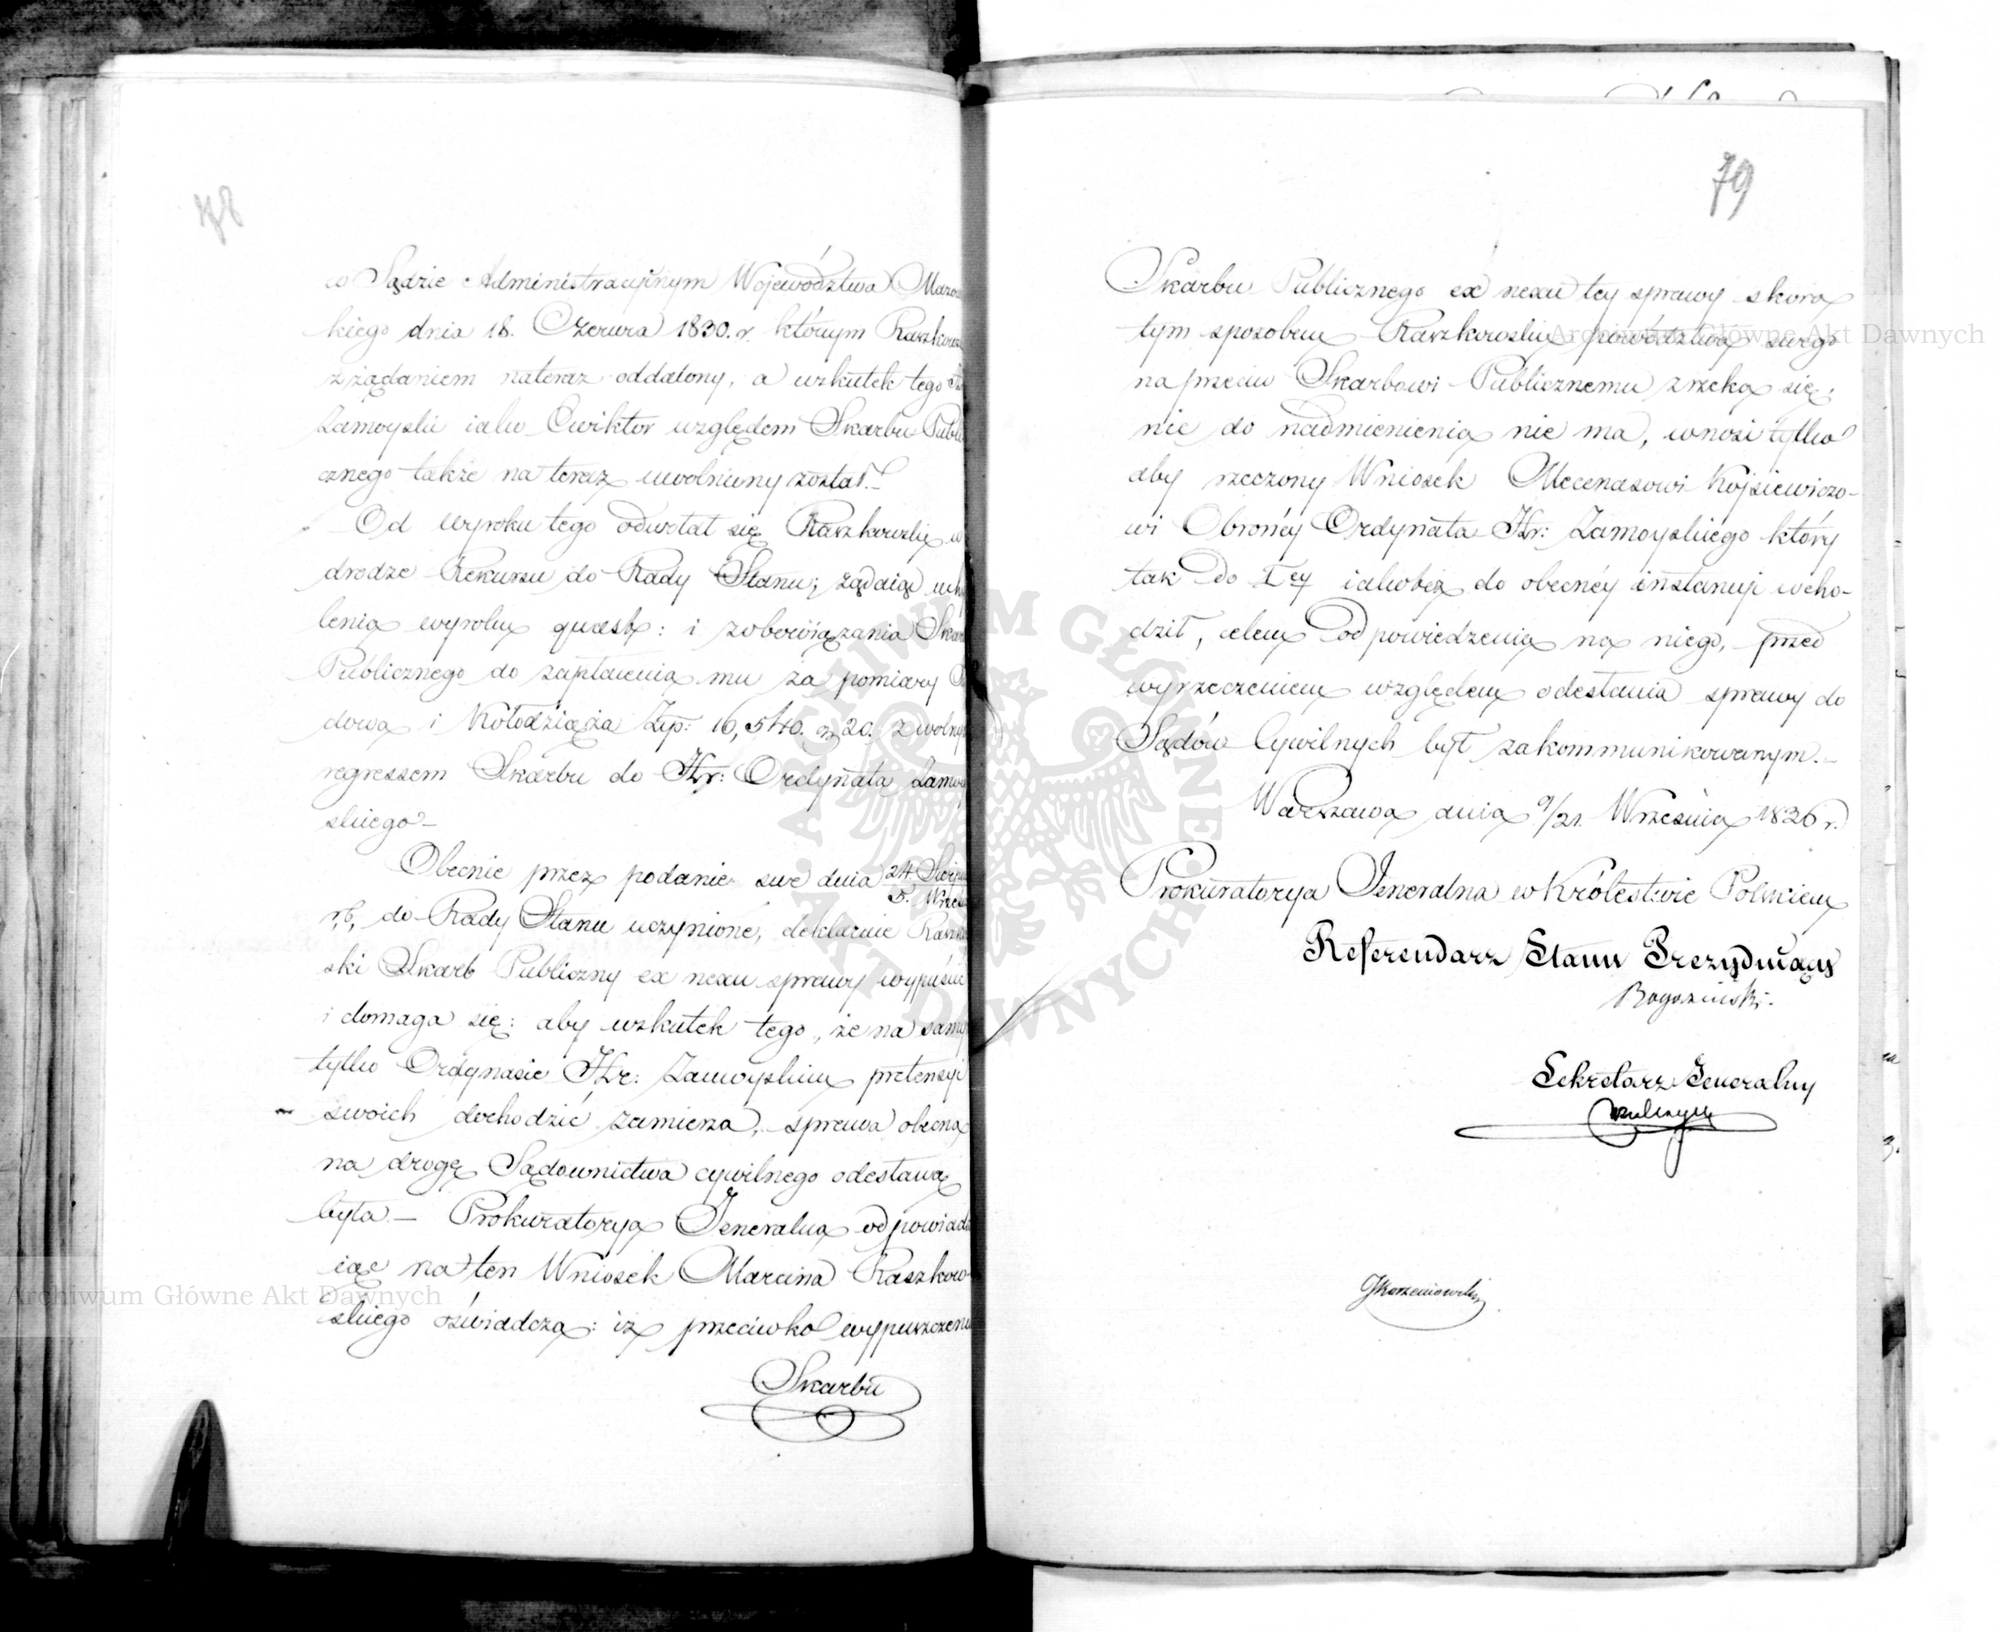 w Sądzie Administracyjnym Województwa Mazow
kiego dnia 18. Czerwca 1830. r. którym Raszkows
z żądaniem nateraz oddalony, a wskutek tego
Zamoyski iako Ewiktor względem Skarbu Publi
cznego także na teraz uwolniony został.—
Od wyroku tego odwołał się Raszkowski w
drodze Rekursu do Rady Stanu; żądaiąc uchy
lenia wyroku quaest: i zobowiązania Skar
Publicznego do zapłacenia mu za pomiary
dowa i Kołodziąża Złp: 16,540. gr 20. z wolnym
regressem Skarbu do Hr: Ordynata Zamoy
skiego—
Obecnie przez podanie swe dnia 24 Sierpnia
5. Wrześ
r, b, do Rady Stanu uczynione, deklaruie Raszkow
ski Skarb Publiczny ex nexu sprawy wypuścić
i domaga się: aby wskutek tego, że na samym
tylko Ordynacie Hr: Zamoyskim pretensyi
swoich dochodzić zamierza, sprawa obecna
na drogę Sądownictwa cywilnego odesłaną
była — Prokuratorya Jeneralna odpowiada
iąc na ten Wniosek Marcina Raszkow-
skiego oświadcza: iż przeciwko wypuszczeniu
Skarbu
79
Skarbu Publicznego ex nexu tey sprawy skoro
tym sposobem Raszkowski powództwa swego
naprzeciw Skarbowi Publicznemu zrzeka się,
nic do nadmienienia nie ma, wnosi tylko
aby rzeczony Wniosek Mecenasowi Kojsiewiczo-
wi Obrońcy Ordynata Hr: Zamoyskiego który
tak do Iey iakoteż do obecnéy instancyi wcho-
dził, celem odpowiedzenia na niego, przed
wyrzeczeniem względem odesłania sprawy do
Sądów Cywilnych był zakommunikowanym.—
Warszawa dnia 9/21. Września 1836 r.
Prokuratorya Jeneralna w Królestwie Polskiem
Referendarz Stanu Prezyduiący
Sekretarz Jeneralny
JKorzeniowski
Archiwum Główne Akt Dawnych
Archiwum Główne Akt Dawnych
ARCHIWUM GŁÓWNE AKT DAWNYCH